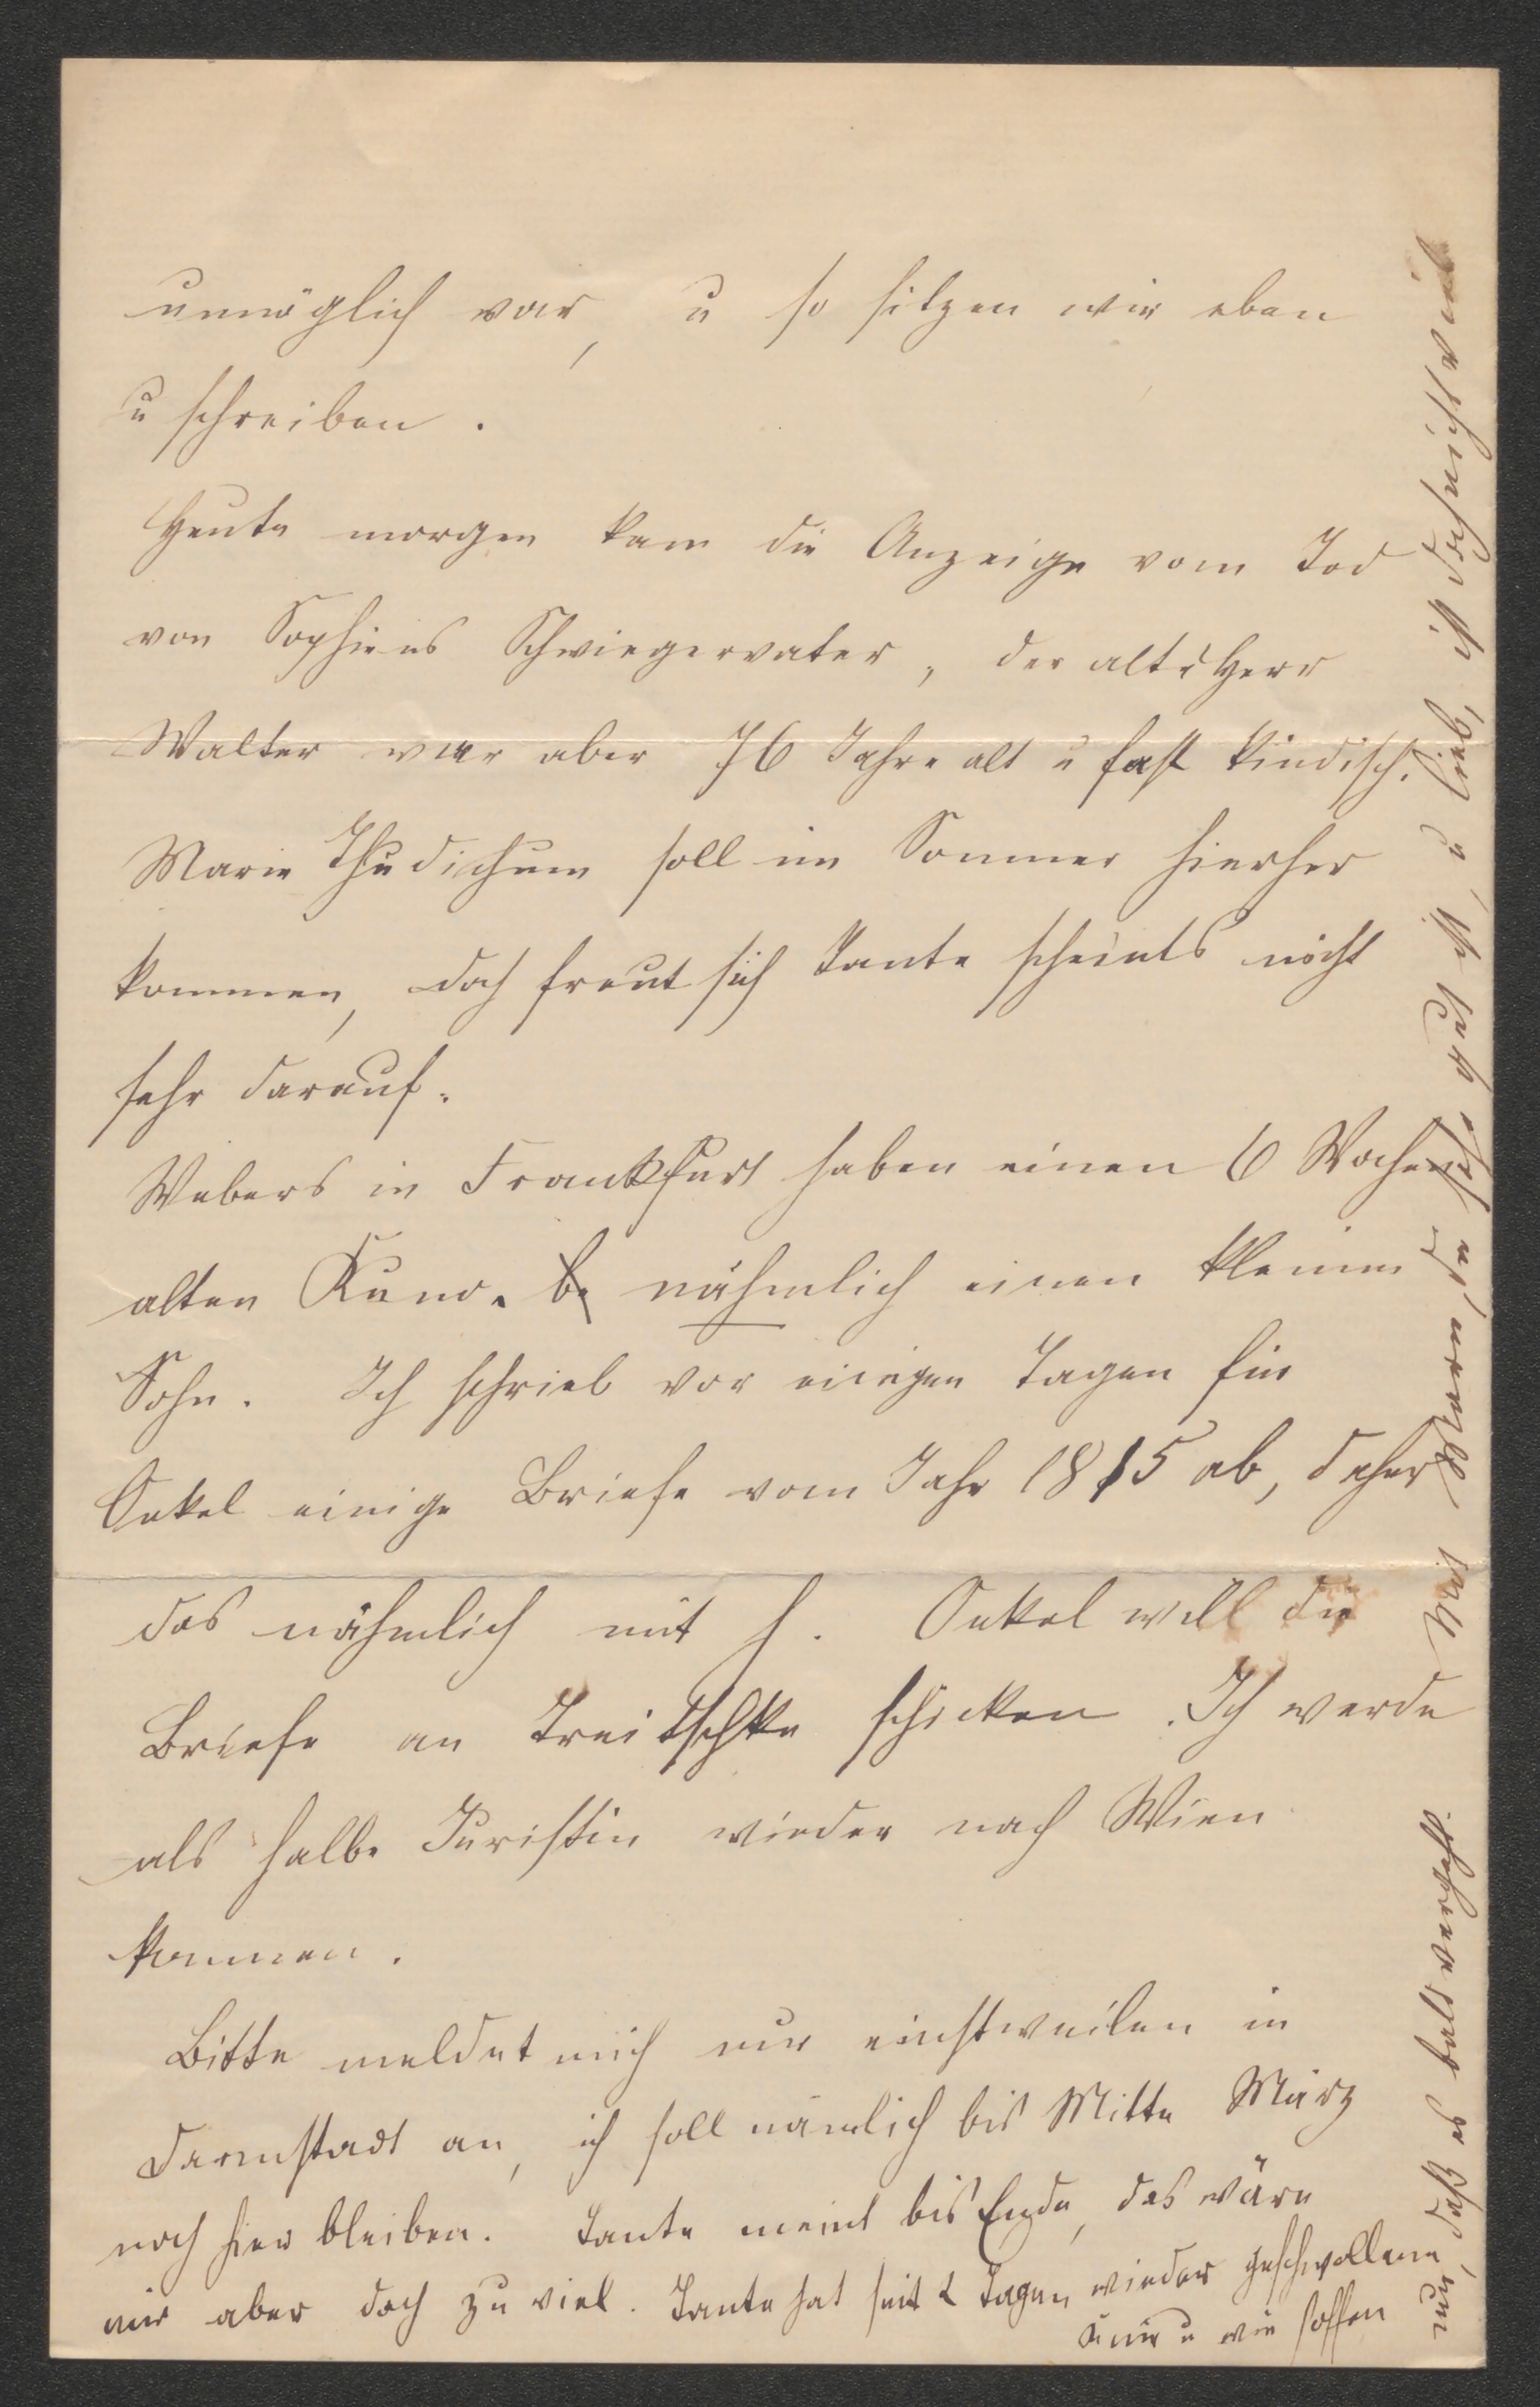 unmöglich war, u so sitzen wir eben
u schreiben.
Heute morgen kam die Anzeige vom Tod
von Sophiens Schwiegervater, der alte Herr
Walter war aber 76 Jahre alt u fast kindisch.
Marie Thudichum soll im Sommer hierher
kommen, doch freut sich Tante scheints nicht
sehr darauf.
Webers in Frankfurt haben einen 6 Wochen
alten Kuno. be nähmlich einen kleinen
Sohn. Ich schrieb vor einigen Tagen für
Onkel einige Briefe vom Jahr 1815 ab, daher
das nähmlich mit h. Onkel will die
Briefe an Treitschke schicken. Ich werde
als halbe Juristin wieder nach Wien
kommen.
Bitte meldet mich nur einstweilen in
Darmstadt an, ich soll nämlich bis Mitte März
noch hier bleiben. Tante meint bis Ende, das wäre
mir aber doch zu viel. Tante hat seit 2 Tagen wieder geschwollene
Knie u wir hoffen
nur, daß es bald vergeht.
Mit Marn, die sehr gut ist, u lieb, ist doch nicht viel